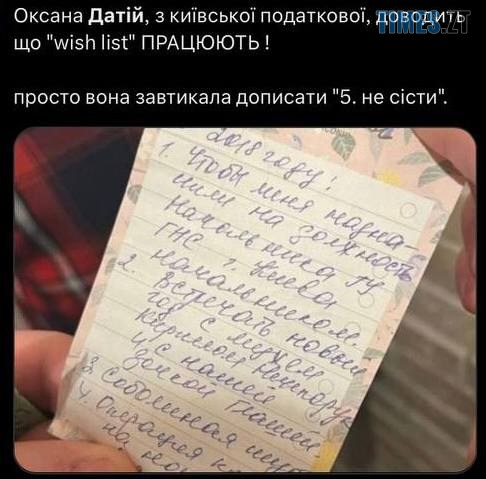 Оксана Датій, з київської податкової, доводить
що "wish list" ПРАЦЮЮТЬ !
просто вона завтикала дописати "5. не сісти".
TIMES.ZT
2018 году:
1. Чтобы меня назна-
чили на должность
Начальника ГУ
ГНС г. Киева
начальником.
2. Встречать новый
год с мужем
Кириллом
и с нашей
дочкой Машей.
3. Соболиная шуба
4. Операция
на